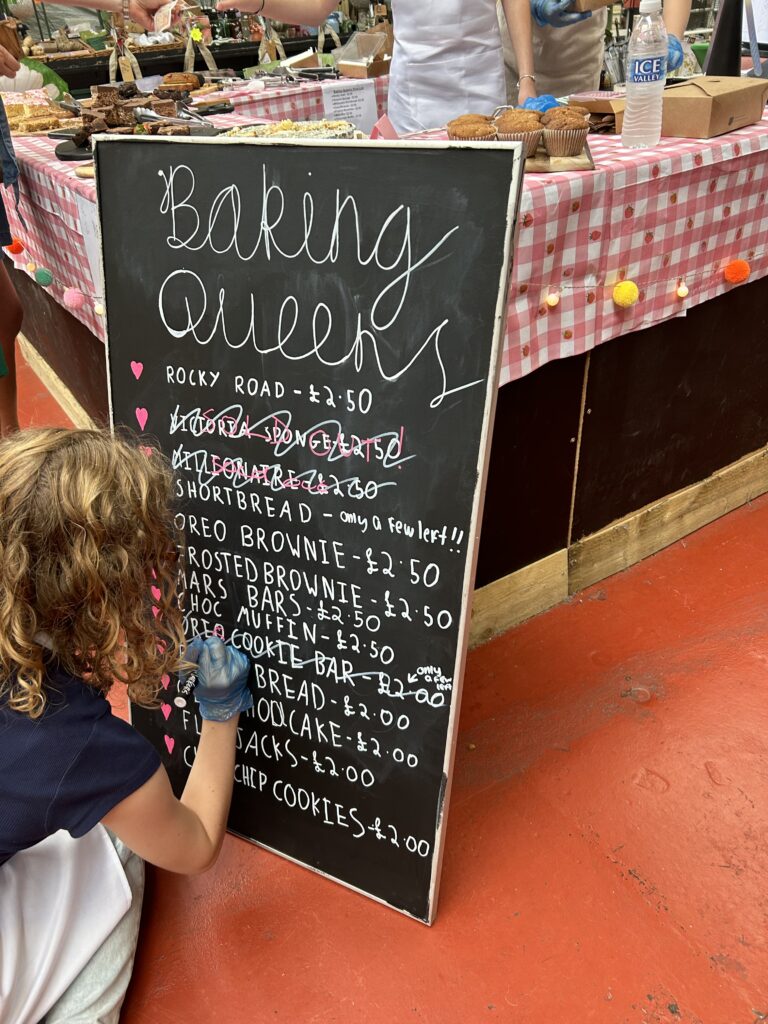 Baking
Queens
ROCKY ROAD - £2.50
VICTORIA SPONGE - £2.50
SOLD OUT!
MILLIONAIRE £2.50
SHORTBREAD - only a few left!!
OREO BROWNIE - £2.50
FROSTED BROWNIE - £2.50
MARS BARS - £2.50
CHOC MUFFIN - £2.50
OREO COOKIE BAR - £2.00
only
a few
left
BREAD - £2.00
CAKE - £2.00
JACKS - £2.00
CHIP COOKIES - £2.00
ICE
VALLEY